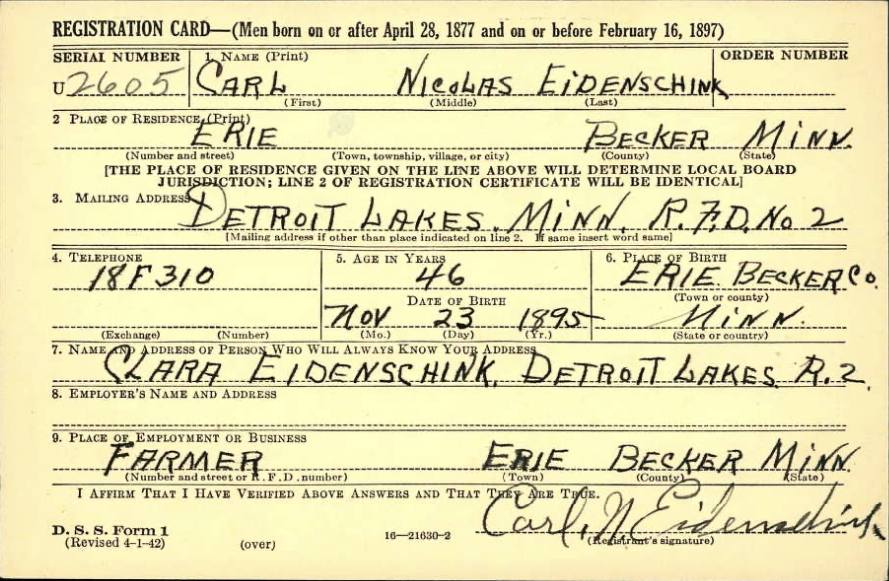 REGISTRATION CARD—(Men born on or after April 28, 1877 and on or before February 16, 1897)
SERIAL NUMBER 1. NAME (Print) ORDER NUMBER
U2605 CARL NICOLAS EIDENSCHINK
(First) (Middle) (Last)
2 PLACE OF RESIDENCE (Print)
ERIE BECKER MINN.
(Number and street) (Town, township, village, or city) (County) (State)
[THE PLACE OF RESIDENCE GIVEN ON THE LINE ABOVE WILL DETERMINE LOCAL BOARD
JURISDICTION; LINE 2 OF REGISTRATION CERTIFICATE WILL BE IDENTICAL]
3. MAILING ADDRESS
DETROIT LAKES. MINN. R.F.D. No 2
[Mailing address if other than place indicated on line 2. If same insert word same]
4. TELEPHONE 5. AGE IN YEARS 6. PLACE OF BIRTH
18F310 46 ERIE BECKER CO.
DATE OF BIRTH (Town or county)
NOV 23 1895 MINN.
(Exchange) (Number) (Mo.) (Day) (Yr.) (State or country)
7. NAME AND ADDRESS OF PERSON WHO WILL ALWAYS KNOW YOUR ADDRESS
CLARA EIDENSCHINK, DETROIT LAKES R.2.
8. EMPLOYER'S NAME AND ADDRESS
9. PLACE OF EMPLOYMENT OR BUSINESS
FARMER ERIE BECKER MINN.
(Number and street or R.F.D. number) (Town) (County) (State)
I AFFIRM THAT I HAVE VERIFIED ABOVE ANSWERS AND THAT THEY ARE TRUE.
Carl. N. Eidenschink
D. S. S. Form 1
(Revised 4-1-42) (over) 16—21630-2 (Registrant's signature)